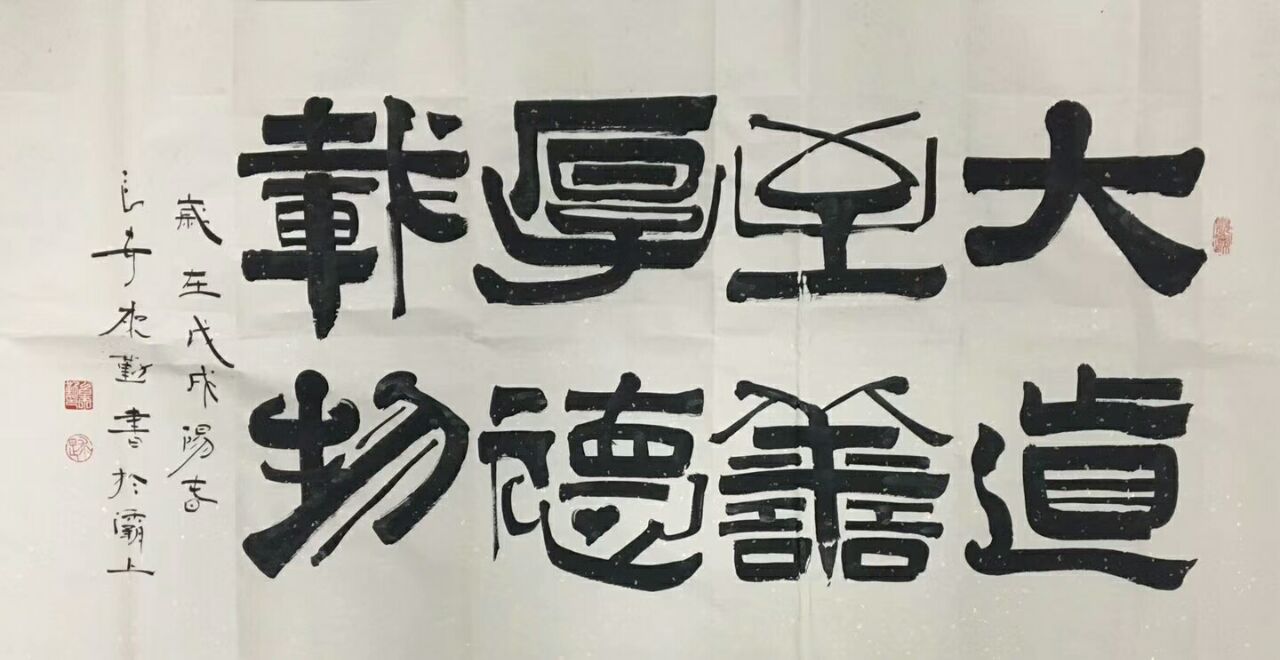 大道
至善
厚德
載物
歲在戊戌陽春
長安 勤書於灞上